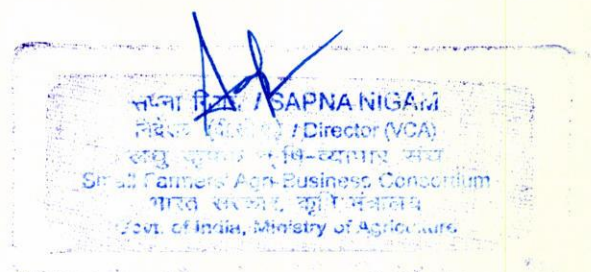 सपना निगम / SAPNA NIGAM
/ Director (VCA)
लघु कृषक कृषि-व्यापार संघ
Small Farmers' Agri-Business Consortium
भारत सरकार, कृषि मंत्रालय
Govt. of India, Ministry of Agriculture